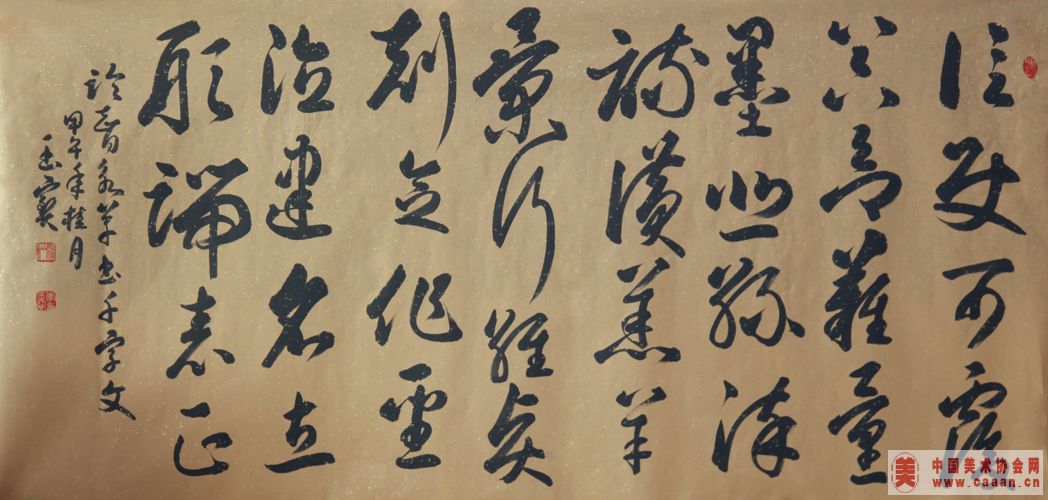 信使可覆
器欲難量
墨悲絲染
詩讚羔羊
景行維賢
剋念作聖
德建名立
形端表正
臨智永草書千字文
甲午年桂月
美
中国美术协会网
www.caaan.cn